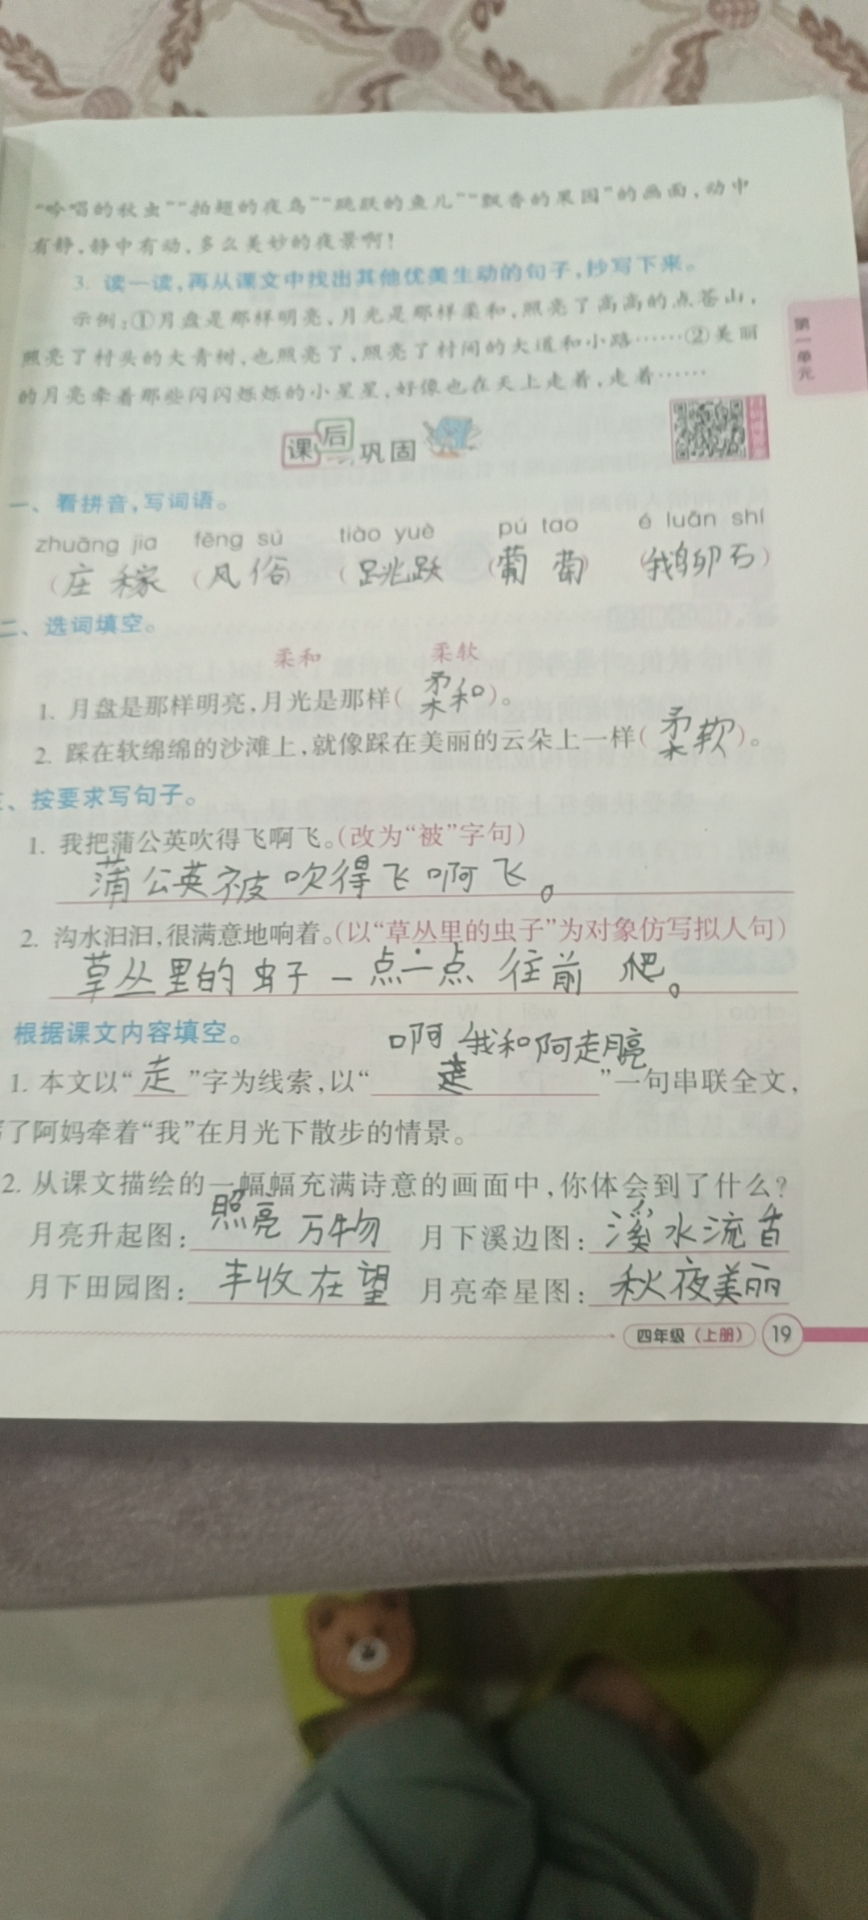 “吟唱的秋虫”“拍翅的夜鸟”“跳跃的鱼儿”“飘香的果园”的画面,动中
有静,静中有动,多么美妙的夜景啊!
3. 读一读,再从课文中找出其他优美生动的句子,抄写下来。
示例:①月盘是那样明亮,月光是那样柔和,照亮了高高的点苍山,
照亮了村头的大青树,也照亮了,照亮了村间的大道和小路……②美丽
的月亮牵着那些闪闪烁烁的小星星,好像也在天上走着,走着……
第一单元
课后巩固
一、看拼音,写词语。
zhuāng jia fēng sú tiào yuè pú tao é luǎn shí
(庄稼 (风俗) (跳跃 (葡萄) (鹅卵石)
二、选词填空。
柔和 柔软
1. 月盘是那样明亮,月光是那样(柔和)。
2. 踩在软绵绵的沙滩上,就像踩在美丽的云朵上一样(柔软)。
、按要求写句子。
1. 我把蒲公英吹得飞啊飞。(改为“被”字句)
蒲公英被吹得飞啊飞。
2. 沟水汩汩,很满意地响着。(以“草丛里的虫子”为对象仿写拟人句)
草丛里的虫子一点一点往前爬。
根据课文内容填空。
啊,我和阿走月亮
1. 本文以“走”字为线索,以“走”一句串联全文,
了阿妈牵着“我”在月光下散步的情景。
2. 从课文描绘的一幅幅充满诗意的画面中,你体会到了什么?
月亮升起图:照亮万物 月下溪边图:溪水流香
月下田园图:丰收在望 月亮牵星图:秋夜美丽
四年级(上册) 19